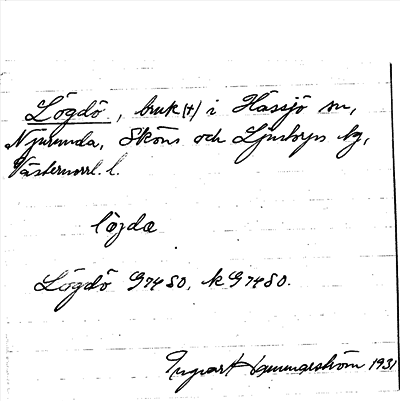 Lögdö, bruk (+) i Hässjö sn,
Njurunda, Sköns och Ljustorps tg,
Västernorrl. l.
lö̀gdα
Lögdö G7480, k G7480.
Ingvar Hammarström 1931